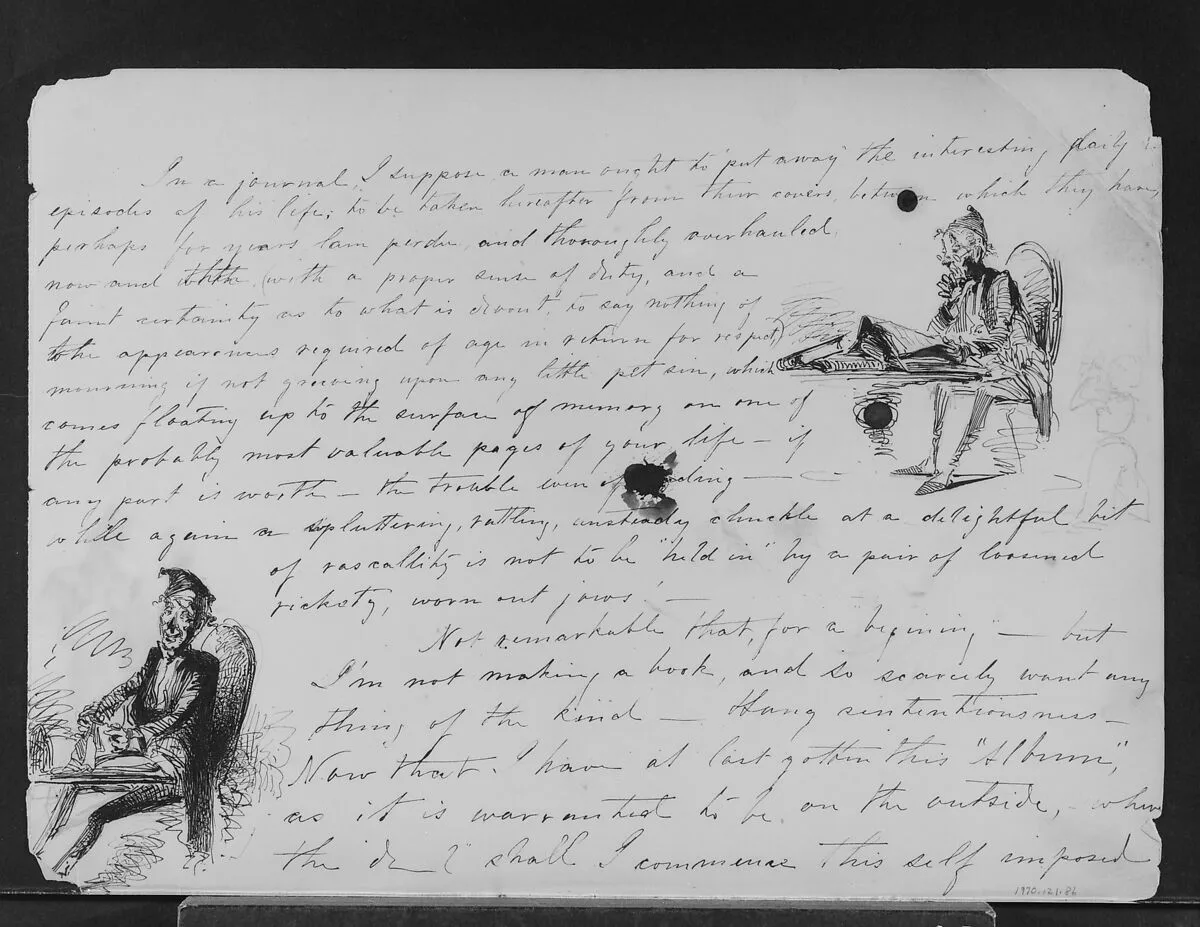 In a journal, I suppose a man ought to "put away" the interesting daily
episodes of his life; to be taken hereafter from their covers, between which they have,
perhaps for years lain perdu, and thoroughly overhauled
now and (with a proper sense of duty, and a
faint certainty as to what is devout, to say nothing of
the appearances required of age in return for respect)
mourning if not grieving upon any little pet sin, which
comes floating up to the surface of memory on one of
the probably most valuable pages of your life – if
any part is worth – the trouble even of –
while again a spluttering, rattling, unsteady chuckle at a delightful bit
of rascallity is not to be "held in" by a pair of loosened
rickety, worn out jaws! –
Not remarkable that, for a "begining" – but
I'm not making a book, and so scarcely want any
thing of the kind – Hang sententiousness –
Now that I have at last gotten this "Album",
as it is warranted to be on the outside, – where
the d— l shall I commence this self imposed
1970.121.86